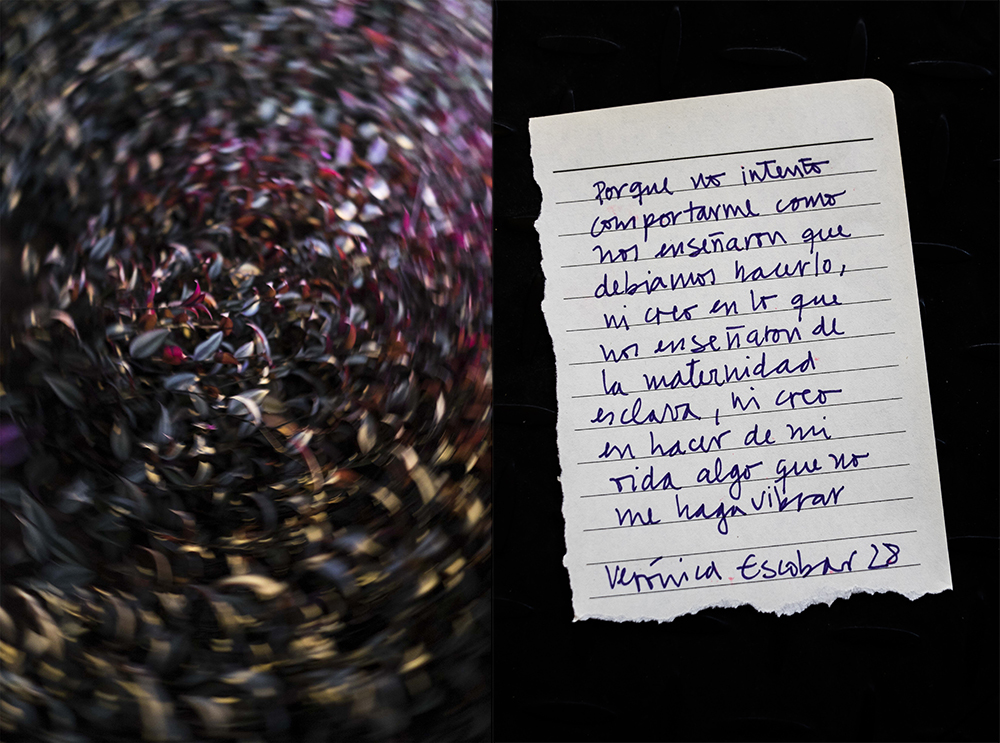 Porque no intento
comportarme como
nos enseñaron que
debiamos hacerlo,
ni creo en lo que
nos enseñaron de
la maternidad
esclava, ni creo
en hacer de mi
vida algo que no
me haga vibrar
Verónica Escobar 28